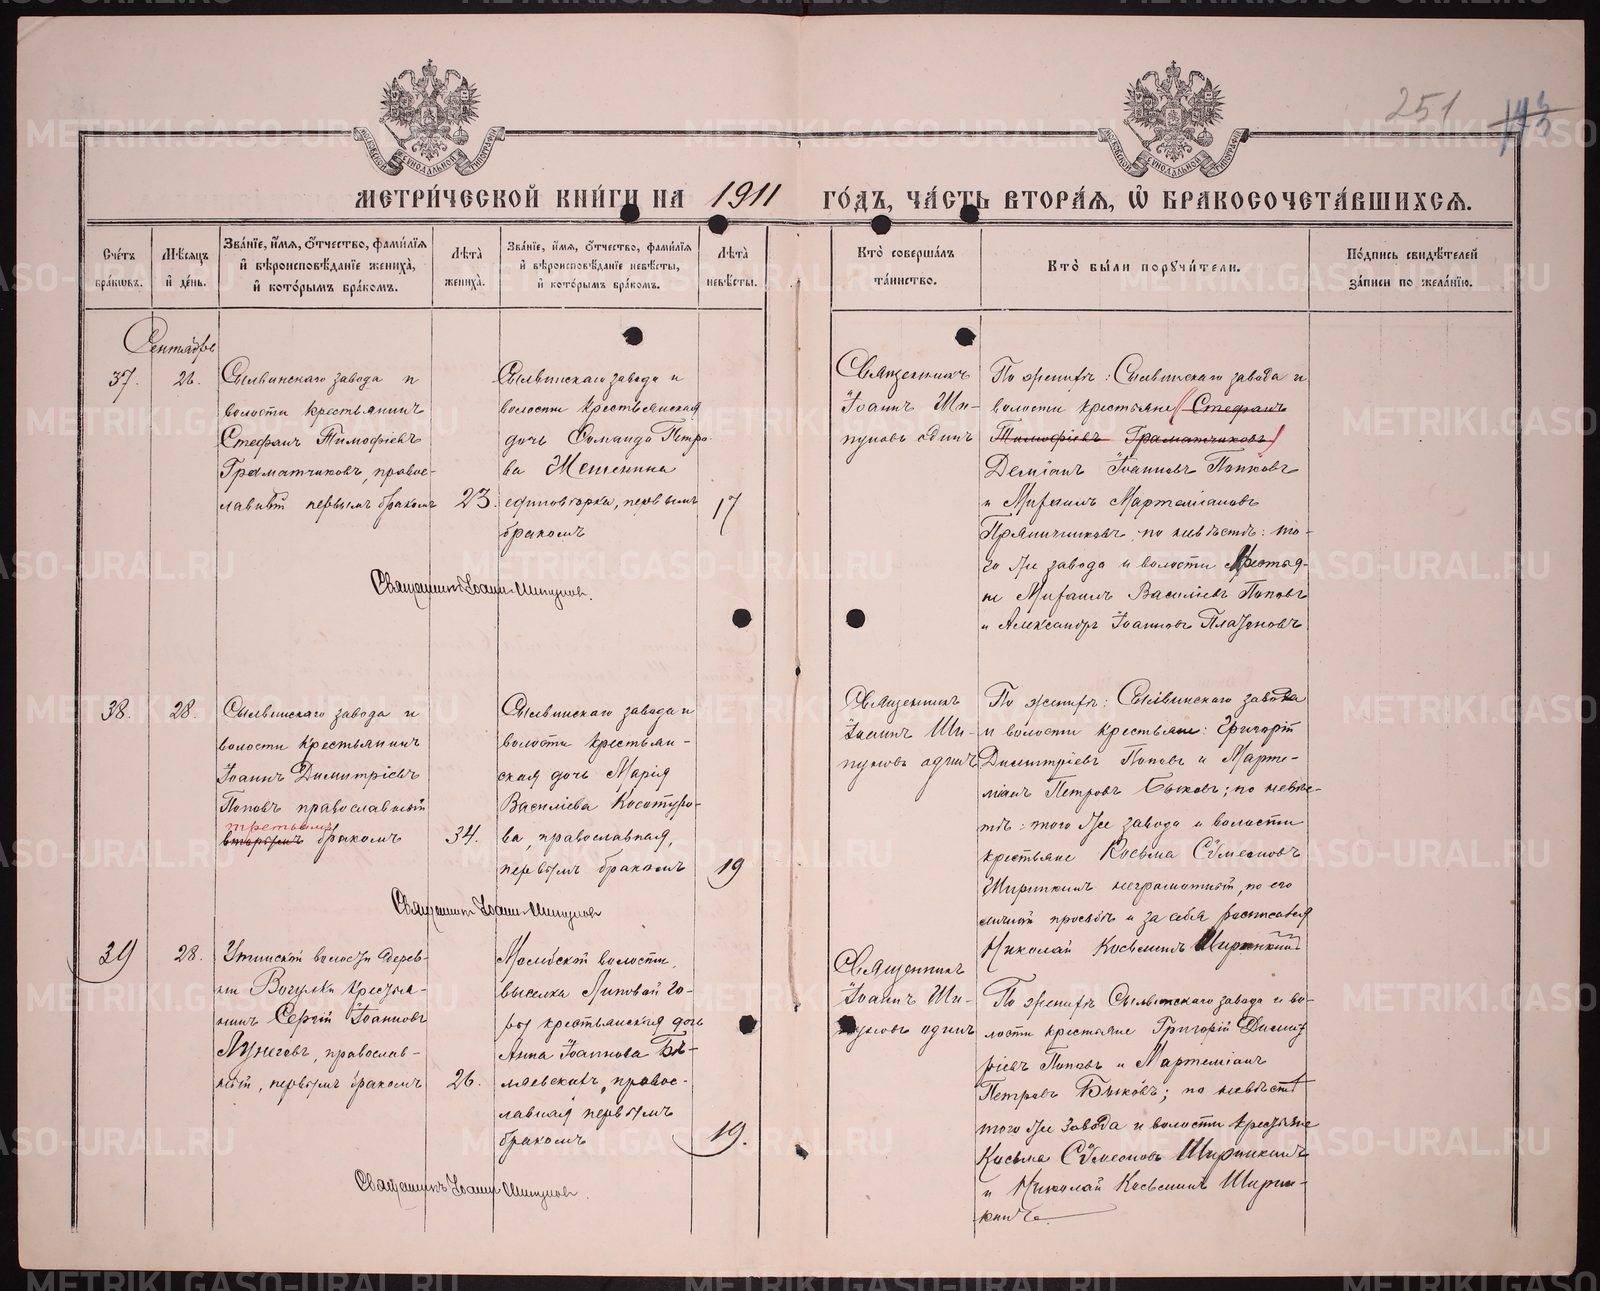 251
МЕТРИ́ЧЕСКОЙ КНИ́ГИ НА 1911 ГО́ДЪ, ЧА́СТЬ ВТОРА́Ѧ, Ѽ БРАКОСОЧЕТА́ВШИХСѦ.
Сче́тъ бра́кѡвъ.
Мѣ́сѧцъ и҆ де́нь.
Зва́нїе, и҆́мѧ, ѻ҆́тчество, фами́лїѧ
и҆ вѣроисповѣ́данїе жениха̀,
и҆ кото́рымъ бра́комъ.
Лѣ́та жениха̀.
Зва́нїе, и҆́мѧ, ѻ҆́тчество, фами́лїѧ
и҆ вѣроисповѣ́данїе невѣ́сты,
и҆ кото́рымъ бра́комъ.
Лѣ́та невѣ́сты.
Кто̀ соверша́лъ
та́инство.
Кто̀ бы́ли порꙋчи́тели.
По́дпись свидѣ́телей
за́писи по жела́нїю.
Сентябрь
37.
26.
Сылвинскаго завода и
волости крестьянинъ
Стефанъ Тимофіевъ
Граматчиковъ, правос-
лавный первымъ бракомъ
23.
Сылвинскаго завода и
волости крестьянская
дочь Петро-
ва
единовѣрка, первымъ
бракомъ
17
Священникъ
Іоаннъ Ши-
пуновъ одинъ
По женихѣ: Сылвинскаго завода и
волости крестьяне Стефанъ
Тимофіевъ Граматчиковъ
Деміанъ Іоанновъ Поповъ
и Михаилъ Мартеміановъ
Пряничниковъ, по невѣстѣ: то-
го же завода и волости крестья-
не Михаилъ Василіевъ Поповъ
и Александръ Іоанновъ
Священникъ Іоаннъ Шипуновъ.
38.
28.
Сылвинскаго завода и
волости крестьянинъ
Іоаннъ Димитріевъ
Поповъ православный
третьимъ
вторымъ бракомъ
34.
Сылвинскаго завода и
волости крестьян-
ская дочь Марія
Василіева Косотуро-
ва, православная,
первымъ бракомъ
19
Священникъ
Іоаннъ Ши-
пуновъ одинъ
По женихѣ: Сылвинскаго завода
и волости крестьяне: Григорій
Димитріевъ Поповъ и Марте-
міанъ Петровъ Быковъ; по невѣс-
тѣ: того же завода и волости
крестьяне Косьма Сѵмеоновъ
Ширинкинъ неграмотный, по его
личной просьбѣ и за себя росписался
Николай Косьминъ Ширинкинъ
Священникъ Іоаннъ Шипуновъ
39
28.
Уткинской волости дерев-
ни Вогулки крестья-
нинъ Сергій Іоанновъ
Лунеговъ, православ-
ный, первымъ бракомъ
26.
Молебской волости,
выселка Липовой Го-
ры крестьянская дочь
Анна Іоаннова Бѣ-
ляевскихъ, правос-
лавная первымъ
бракомъ
19.
Священникъ
Іоаннъ Ши-
пуновъ одинъ
По женихѣ Сылвинскаго завода и во-
лости крестьяне Григорій Димит-
ріевъ Поповъ и Мартеміанъ
Петровъ Быковъ; по невѣстѣ
того же завода и волости крестьяне
Косьма Сѵмеоновъ Ширинкинъ
и Николай Косьминъ Ширин-
кинъ.
Священникъ Іоаннъ Шипуновъ.
METRIKI.GASO-URAL.RU